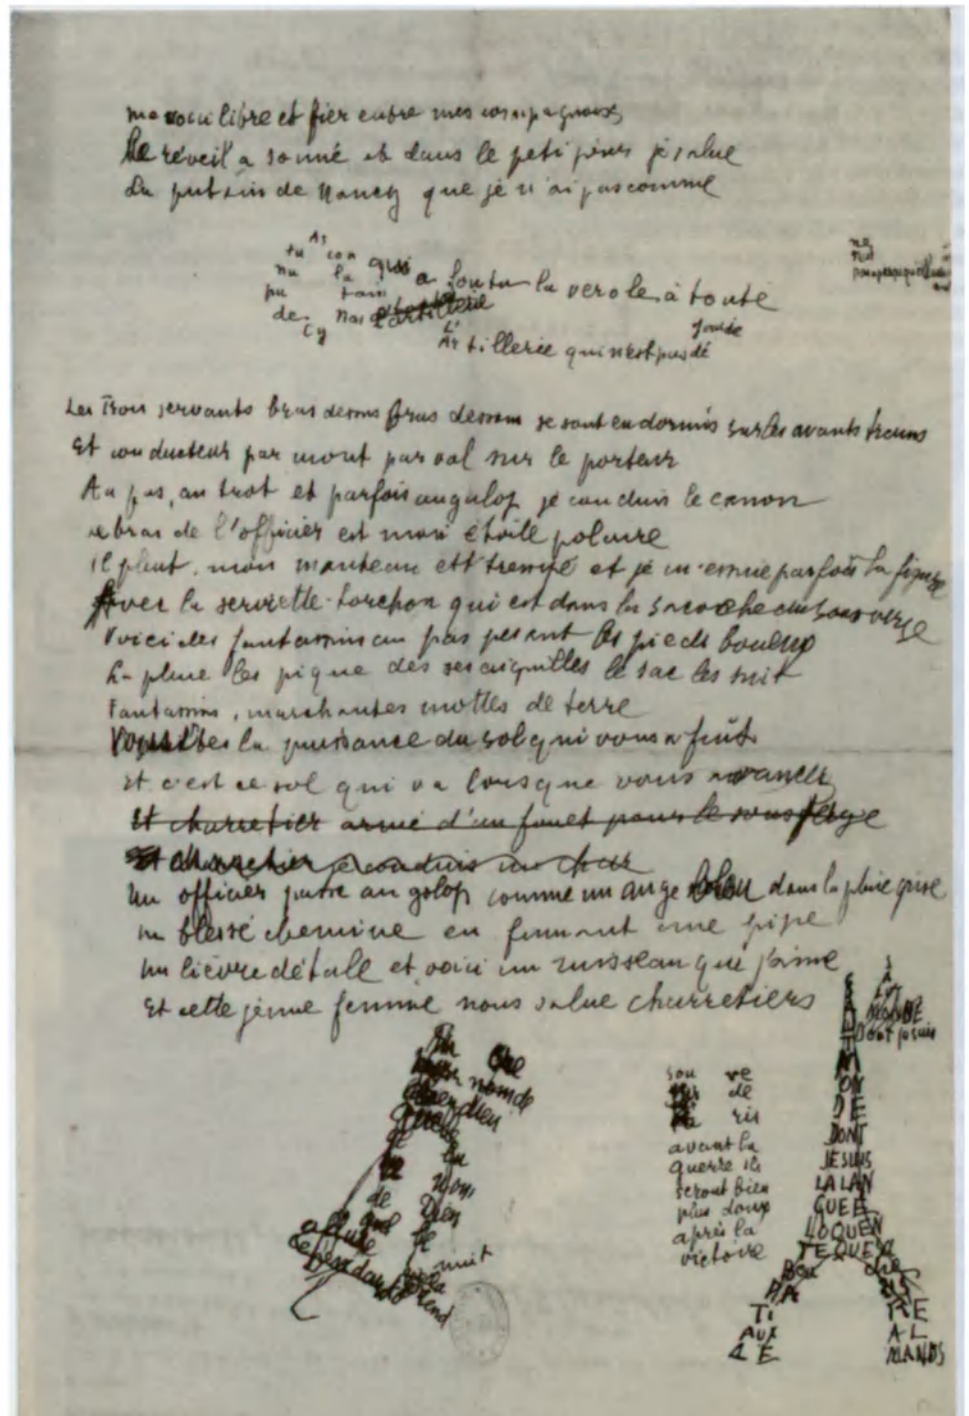 me voici libre et fier entre mes compagnons
Le réveil a sonné et dans le petit jour je salue
La putain de Nancy que je n'ai pas connue
tu As con
nu la
pu tain
de
Nan
cy
qui a foutu la vérole à toute
l'artillerie
L'
Artillerie qui n'est pas dé
goutée
Les Trois servants bras dessus bras dessous se sont endormis sur les avants trains
Et conducteur par mont par val sur le porteur
Au pas, au trot et parfois au galop je conduis le canon
Le bras de l'officier est mon étoile polaire
Il pleut, mon manteau est trempé et je m'essuie parfois la figure
Avec la serviette-torchon qui est dans la sacoche du sous verge
Voici des fantassins au pas pesant les pieds boueux
La pluie les pique de ses aiguilles le sac les suit
Fantassins, marchantes mottes de terre
Vous êtes la puissance du sol qui vous a faits
Et c'est ce sol qui va lorsque vous avancez
Et charretier armé d'un fouet pour le sous verge
Et charretier je conduis un char
Un officier passe au galop comme un ange bleu dans la pluie grise
Un blessé chemine en fumant une pipe
Un lièvre détale et voici un ruisseau que j'aime
Et cette jeune femme nous salue charretiers
nom de
Dieu
de
nom
Dieu
de
affute
cependant
nuit
prend
sou ve
nir de
Pa ris
avant la
guerre ils
seront bien
plus doux
après la
victoire
S
A
LUT
MONDE
Dont je suis
M
ON
DE
DONT
JE SUIS
LA LAN
GUE E
LOQUEN
TE QUE SA
BOU CHE
PA
RIS
TI RE
AUX AL
LE MANDS